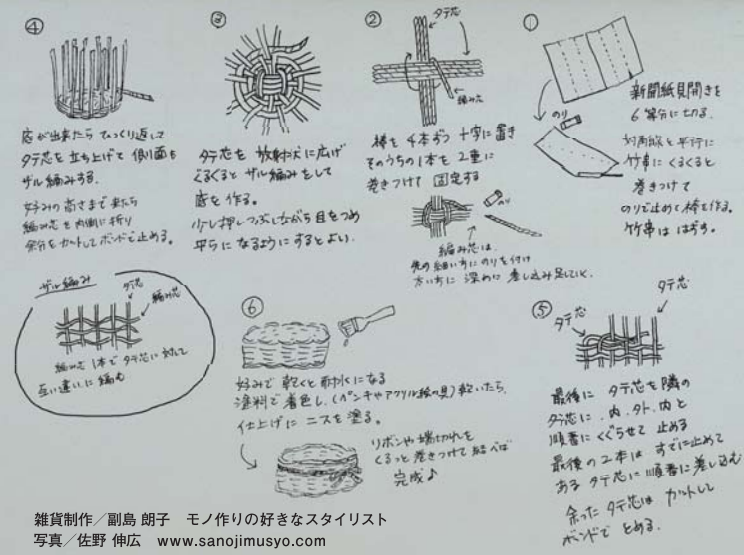 ①
新聞紙見開きを
6等分に切る。
のり
対角線と平行に
竹串にくるくると
巻きつけて
のりで止めて棒を作る。
竹串は はずす。
②
タテ芯
編み芯
棒を4本ずつ 十字に置き
そのうちの1本を2重に
巻きつけて 固定する
のり
編み芯は、
先の細い方にのりを付け
太い方に 深めに 差し込み足していく。
③
タテ芯を 放射状に広げ
くるくると ザル編みをして
底を作る。
少し押しつぶしながら目をつめ
平らに なるようにするとよい。
④
底が出来たら ひっくり返して
タテ芯を立ち上げて 側面も
ザル編みする。
好みの高さまで来たら
編み芯を内側に折り
余分をカットしてボンドで止める。
ザル編み
タテ芯
編み芯
編み芯1本でタテ芯に対して
互い違いに編む
⑤
タテ芯
タテ芯
最後に タテ芯を隣の
タテ芯に、内、外、内と
順番にくぐらせて 止める
最後の2本は すでに止めて
ある タテ芯に順番に差し込む
余った タテ芯は カットして
ボンドで とめる。
⑥
好みで 乾くと耐水になる
塗料で着色し、(ペンキやアクリル絵の具)乾いたら、
仕上げに ニスを塗る。
リボンや端切れを
くるっと巻きつけて結べば
完成♪
雑貨制作／副島 朗子 モノ作りの好きなスタイリスト
写真／佐野 伸広 www.sanojimusyo.com